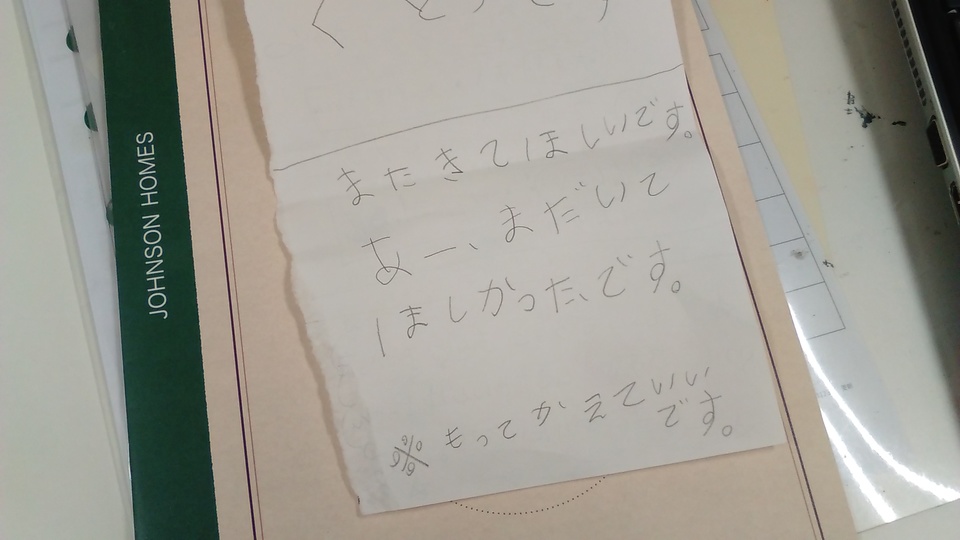 くとうです
またきてほしいです。
あー、まだいて
ほしかったです。
※もってかえていい
です。
JOHNSON HOMES